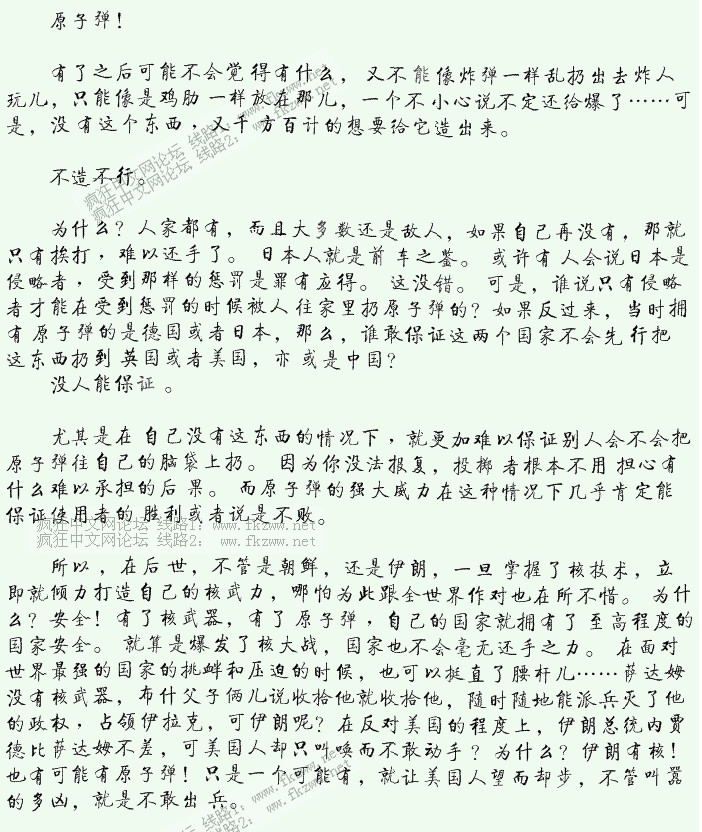 原子弹！
有了之后可能不会觉得有什么，又不能像炸弹一样乱扔出去炸人
玩儿，只能像是鸡肋一样放在那儿，一个不小心说不定还给爆了……可
是，没有这个东西，又千方百计的想要给它造出来。
不造不行。
为什么？人家都有，而且大多数还是敌人，如果自己再没有，那就
只有挨打，难以还手了。日本人就是前车之鉴。或许有人会说日本是
侵略者，受到那样的惩罚是罪有应得。这没错。可是，谁说只有侵略
者才能在受到惩罚的时候被人往家里扔原子弹的？如果反过来，当时拥
有原子弹的是德国或者日本，那么，谁敢保证这两个国家不会先行把
这东西扔到英国或者美国，亦或是中国？
没人能保证。
尤其是在自己没有这东西的情况下，就更加难以保证别人会不会把
原子弹往自己的脑袋上扔。因为你没法报复，投掷者根本不用担心有
什么难以承担的后果。而原子弹的强大威力在这种情况下几乎肯定能
保证使用者的胜利或者说是不败。
所以，在后世，不管是朝鲜，还是伊朗，一旦掌握了核技术，立
即就倾力打造自己的核武力，哪怕为此跟全世界作对也在所不惜。为什
么？安全！有了核武器，有了原子弹，自己的国家就拥有了至高程度的
国家安全。就算是爆发了核大战，国家也不会毫无还手之力。在面对
世界最强的国家的挑衅和压迫的时候，也可以挺直了腰杆儿……萨达姆
没有核武器，布什父子俩儿说收拾他就收拾他，随时随地能派兵灭了他
的政权，占领伊拉克，可伊朗呢？在反对美国的程度上，伊朗总统内贾
德比萨达姆不差，可美国人却只叫唤而不敢动手？为什么？伊朗有核！
也有可能有原子弹！只是一个可能有，就让美国人望而却步，不管叫嚣
的多凶，就是不敢出兵。
疯狂中文网论坛 线路1： www.fkzww.net
疯狂中文网论坛 线路2： www.fkzww.net
疯狂中文网论坛 线路1： www.fkzww.net
疯狂中文网论坛 线路2： www.fkzww.net
疯狂中文网论坛 线路1： www.fkzww.net
线路2： www.fkzww.net